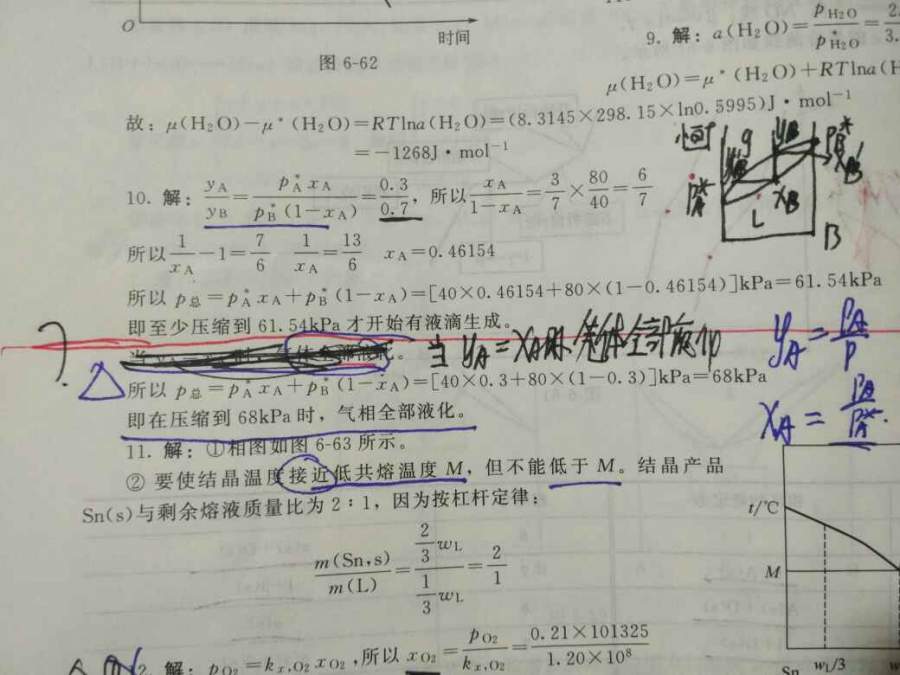 O
时间
图 6-62
9. 解：a(H₂O)=p H₂O/p*H₂O=2./3.
μ(H₂O)=μ*(H₂O)+RTlna(H
故：μ(H₂O)−μ*(H₂O)=RTlna(H₂O)=(8.3145×298.15×ln0.5995)J·mol⁻¹
=−1268J·mol⁻¹
10. 解：yA/yB=p*A xA/p*B(1−xA)=0.3/0.7，所以 xA/1−xA=3/7×80/40=6/7
g
yB
yB
P*B
xB
P*A
xB
L
B
所以 1/xA−1=7/6 1/xA=13/6 xA=0.46154
所以 p总=p*A xA+p*B(1−xA)=[40×0.46154+80×(1−0.46154)]kPa=61.54kPa
即至少压缩到 61.54kPa 才开始有液滴生成。
? 当 yA=xA时
yA=PA/P
所以 p总=p*A xA+p*B(1−xA)=[40×0.3+80×(1−0.3)]kPa=68kPa
即在压缩到 68kPa 时，气相全部液化。
xA=
11. 解：①相图如图 6-63 所示。
② 要使结晶温度接近低共熔温度 M，但不能低于 M。结晶产品
Sn(s)与剩余熔液质量比为 2∶1，因为按杠杆定律：
m(Sn,s)/m(L)=2/3 wL/1/3 wL=2/1
t/℃
M
Sn wL/3 w
2. 解：pO₂=kx,O₂ xO₂，所以 xO₂=pO₂/kx,O₂=0.21×101325/1.20×10⁸